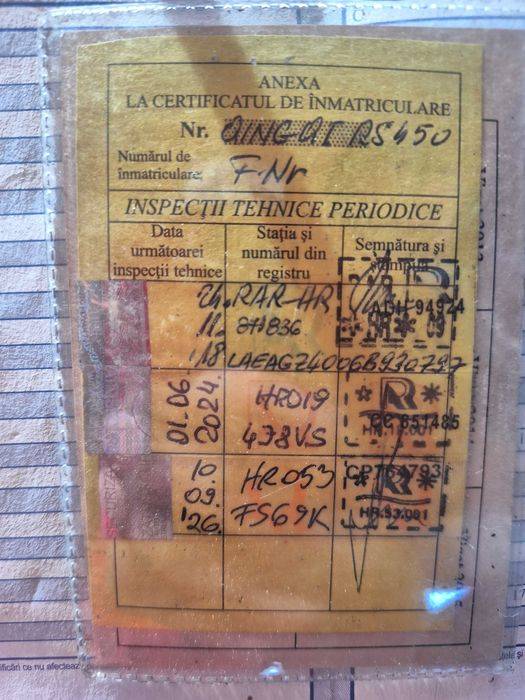 ANEXA
LA CERTIFICATUL DE ÎNMATRICULARE
Nr. QINGQI RS450
Numărul de
înmatriculare: F.Nr
INSPECȚII TEHNICE PERIODICE
Data
următoarei
inspecții tehnice
Stația și
numărul din
registru
Semnătura și
ștampila
24.
11.
'18
RAR-HR
271836
LAEAGZ4006B930797
94924
HR 09
01.06
2024
HR019
478VS
CC 651485
10.
09.
'26.
HR053
FS69K
CP764793
HR.53.001
ficări ce nu afecteaz